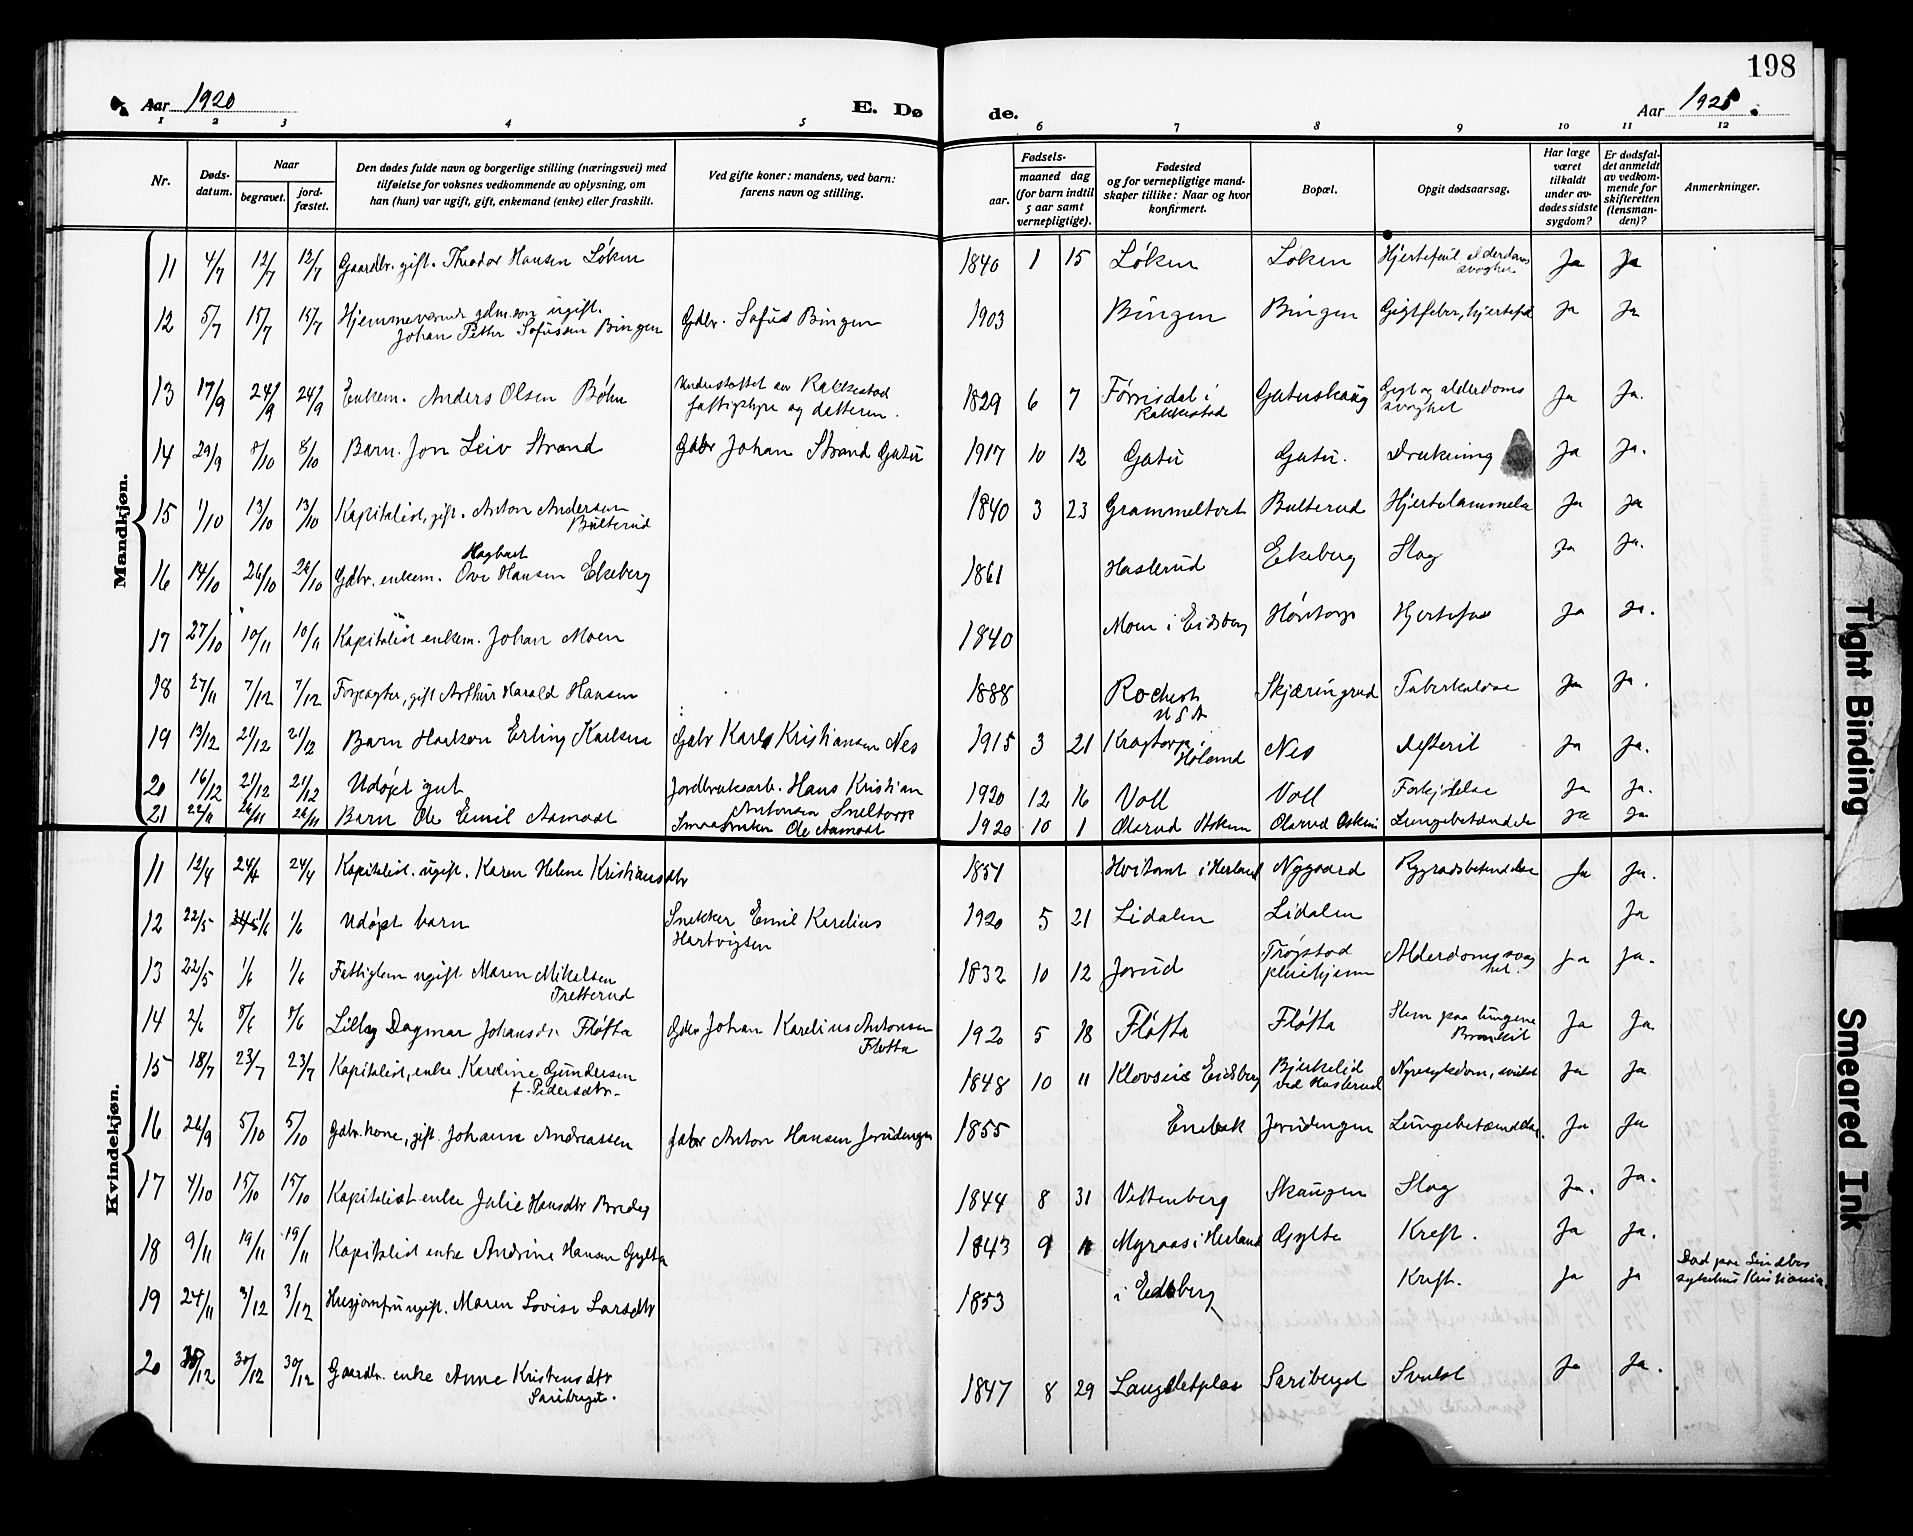 198
Aar 1920
E. Dø
de.
Aar 192
1 2 3 4 5 6 7 8 9 10 11 12
Nr.
Døds-
datum.
Naar
begravet.
jord-
fæstet.
Den dødes fulde navn og borgerlige stilling (næringsvei) med
tilføielse for voksnes vedkommende av oplysning, om
han (hun) var ugift, gift, enkemand (enke) eller fraskilt.
Ved gifte koner: mandens, ved barn:
farens navn og stilling.
Fødsels-
aar.
maaned dag
(for barn indtil
5 aar samt
vernepligtige).
Fødested
og for vernepligtige mand-
skaper tillike: Naar og hvor
konfirmert.
Bopæl.
Opgit dødsaarsag.
Har læge
været
tilkaldt
under av-
dødes sidste
sygdom?
Er dødsfal-
det anmeldt
av vedkom-
mende for
skifteretten
(lensman-
den)?
Anmerkninger.
Mandkjøn.
11 4/7 12/7 12/7 Gaardbr. gift. Theodor Hansen Løken 1840 1 15 Løken Løken Hjertefeil alderdoms Ja Ja
svaghet
12 5/7 15/7 15/7 Hjemmeværende gdm.søn ugift. Gdbr. Sofus Bingen 1903 Bingen Bingen Gigtfeber, hjertefeil Ja Ja
Johan Petter Sofussen Bingen
13 17/9 24/9 24/9 Enkem. Anders Olsen Bøhn Understøttet av Rakkestad 1829 6 7 Førrisdal i Gutuskaug Gigt og alderdoms Ja Ja.
fattigstyre og datteren. Rakkestad svaghet
14 29/9 8/10 8/10 Barn. Jon Leiv Strand Gdbr Johan Strand Gutu 1917 10 12 Gutu Gutu. Drukning Ja Ja.
15 1/10 13/10 13/10 Kapitalist, gift. Anton Andersen 1840 3 23 Grammeltvet Bulterud Hjertelammelse Ja Ja
Bulterud
Hagbart
16 14/10 26/10 26/10 Gdbr. enkem. Ove Hansen Ekeberg 1861 Haslerud Ekeberg Slag Ja Ja.
17 27/10 10/11 10/11 Kapitalist enkem. Johan Moen 1840 Moen i Eidsberg Høitorp Hjertefeil Ja Ja.
18 27/11 7/12 7/12 Forpagter, gift Arthur Harald Hansen 1888 Skjæringrud Tuberkulose Ja Ja.
USA
19 13/12 21/12 21/12 Barn Haakon Erling Karlsen Gdbr Karl Kristiansen Nes 1915 3 21 Kragtorp i Nes Difterit Ja Ja.
Høland
20 16/12 21/12 21/12 Udøpt gut Jordbruksarb. Hans Kristian 1920 12 16 Voll Voll Forkjølelse Ja Ja.
Antonsen Sneltorp
21 22/11 26/11 26/11 Barn Ole Emil Aamodt Smaabruker Ole Aamodt 1920 10 1 Olarud Askim Olarud Askim Lungebetændelse Ja Ja
Kvindekjøn.
11 12/4 24/4 24/4 Kapitalist. ugift. Karen Helene Kristiansdtr 1851 i Herland Nygaard Rygradsbetændelse Ja Ja.
12 22/5 1/6 1/6 Udøpt barn Snekker Emil Karelius 1920 5 21 Lidalen Lidalen Ja
Hartvigsen
13 22/5 1/6 1/6 Fattiglem ugift Maren Mikelsen 1832 10 12 Jorud Trøgstad Alderdomssvag Ja Ja.
Tretterud pleiehjem het.
14 2/6 8/6 8/6 Lilly Dagmar Johansdr Fløtta Gdbr Johan Karelius Antonsen 1920 5 18 Fløtta Fløtta Slem paa lungene Ja Ja
Fløtta Bronkit
15 18/7 23/7 23/7 Kapitalist, enke. Karoline Gundersen 1848 10 11 Eidsberg Bjerkelid Nyresykdom, svulst Ja Ja
f. Pedersdtr. ved Haslerud
16 26/9 5/10 5/10 Gdbr.kone, gift. Johanne Andreassen Gdbr Anton Hansen Jorudengen 1855 Enebak Jorudengen Lungebetændelse. Ja Ja
17 4/10 15/10 15/10 Kapitalist enke Julie Hansdtr 1844 8 31 Vittenberg Skaugen Slag Ja. Ja.
18 9/11 19/11 19/11 Kapitalist enke Andrine Hansen Gylta 1843 9 11 Myraas i Herland Gylte Kreft. Ja Ja.
19 24/11 3/12 3/12 Husjomfru ugift. Maren Lovise Larsdtr 1853 i Eidsberg Kreft. Ja Ja Død paa Lindbos
sykehus Kristiania.
20 30/12 30/12 Gaardbr. enke Anne Kristensdtr 1847 8 29 Langsletplas Svulst Ja Ja.
Tight Binding
Smeared Ink